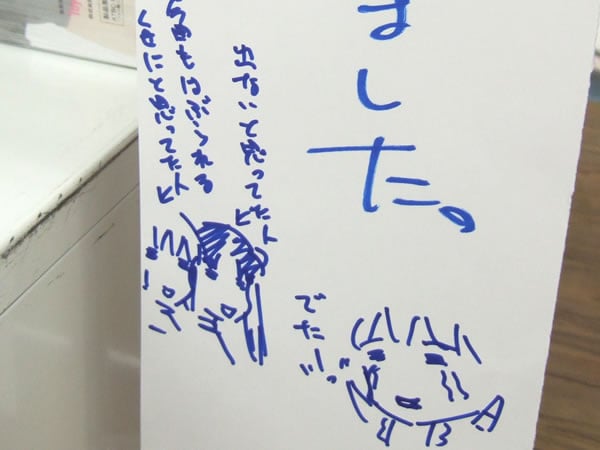 ました。
出ないと思ってた人
今回もはぶられる
くせにと思ってた人
でたーッ